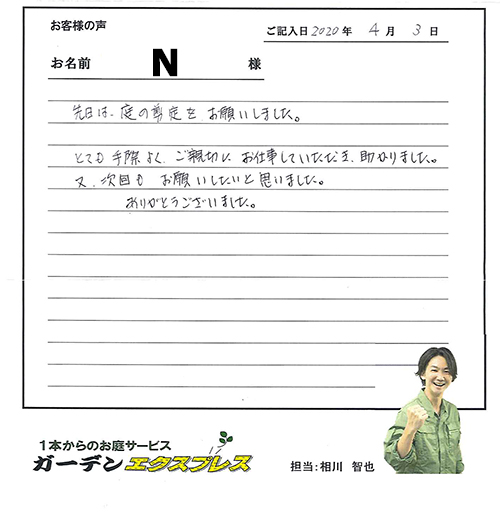 お客様の声
ご記入日 2020年 4月 3日
お名前 N 様
先日は、庭の剪定を お願いしました。
とても 手際よく、ご親切に お仕事していただき、助かりました。
又、次回も お願いしたいと思いました。
ありがとうございました。
1本からのお庭サービス
ガーデンエクスプレス
担当:相川 智也